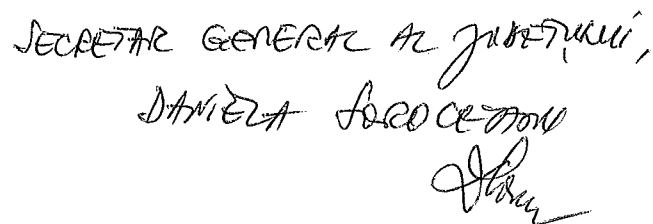 SECRETAR GENERAL AL JUDEȚULUI,
DANIELA SOROCEANU